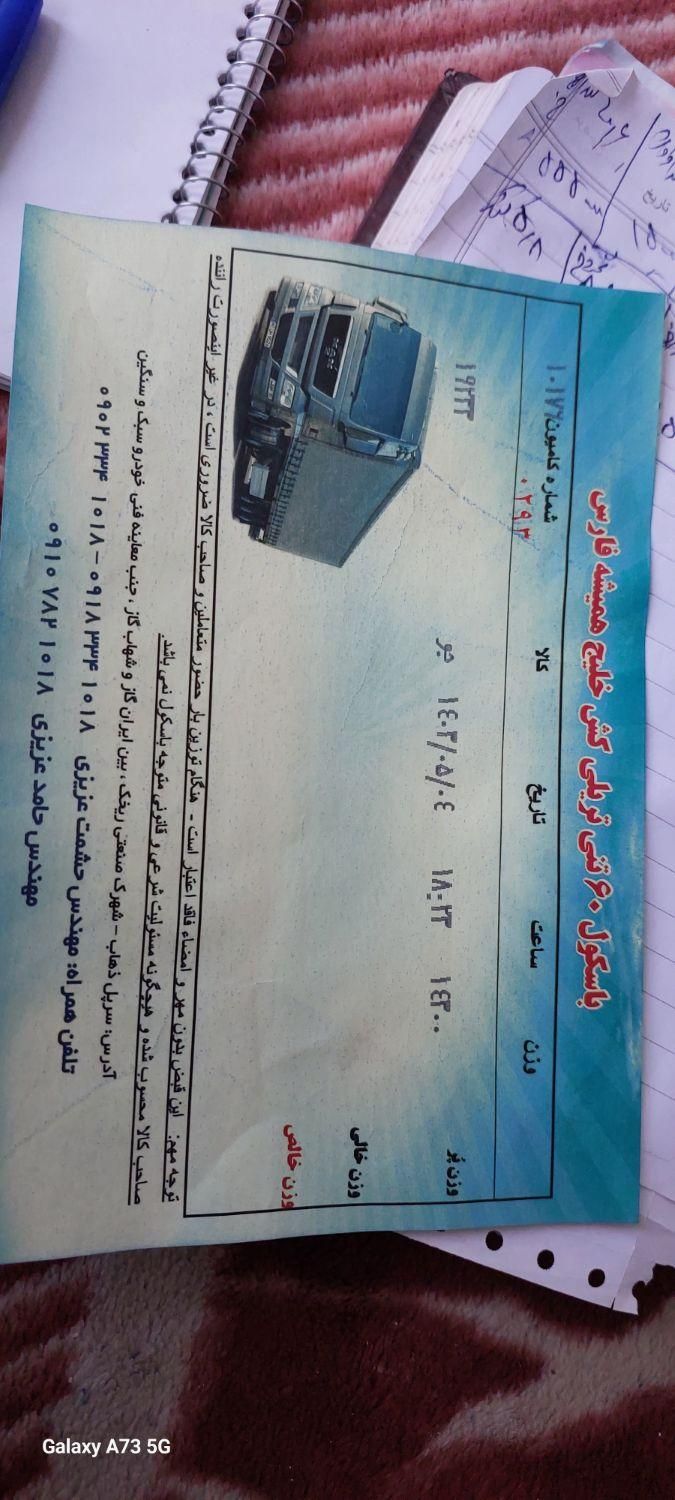 باسکول ۶۰ تنی تریلی کش خلیج همیشه فارس
شماره کامیون کالا تاریخ ساعت وزن
۱۰۱۷۶
۰۲۹۳
۱۹۲۳۳ جو ۱۴۰۳/۰۵/۰۴ ۱۸:۲۳ ۱۴۳۰۰ وزن پُر
وزن خالی
وزن خالص
توجه مهم: این قبض بدون مهر و امضاء فاقد اعتبار است - هنگام توزین بار حضور متعاملین و صاحب کالا ضروری است ، در غیر اینصورت راننده
صاحب کالا محسوب شده و هیچگونه مسئولیت شرعی و قانونی متوجه باسکول نمی باشد.
آدرس: سرپل ذهاب - شهرک صنعتی ریخک ، بین ایران گاز و شهاب گاز ، جنب معاینه فنی خودرو سبک و سنگین
تلفن همراه: مهندس حشمت عزیزی ۰۹۱۸ ۳۳۴ ۱۰۱۸ - ۰۹۰۲ ۳۳۴ ۱۰۱۸
مهندس حامد عزیزی ۰۹۱۰ ۷۸۲ ۱۰۱۸
Galaxy A73 5G